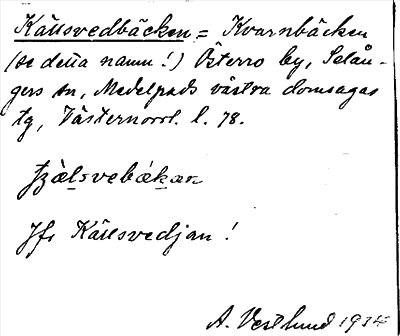 Källsvedbäcken = Kvarnbäcken
(se detta namn!) Österro by, Selån-
gers sn, Medelpads västra domsagas
tg, Västernorrl. l. 78.
Jfr Källsvedjan!
A. Vestlund 1934